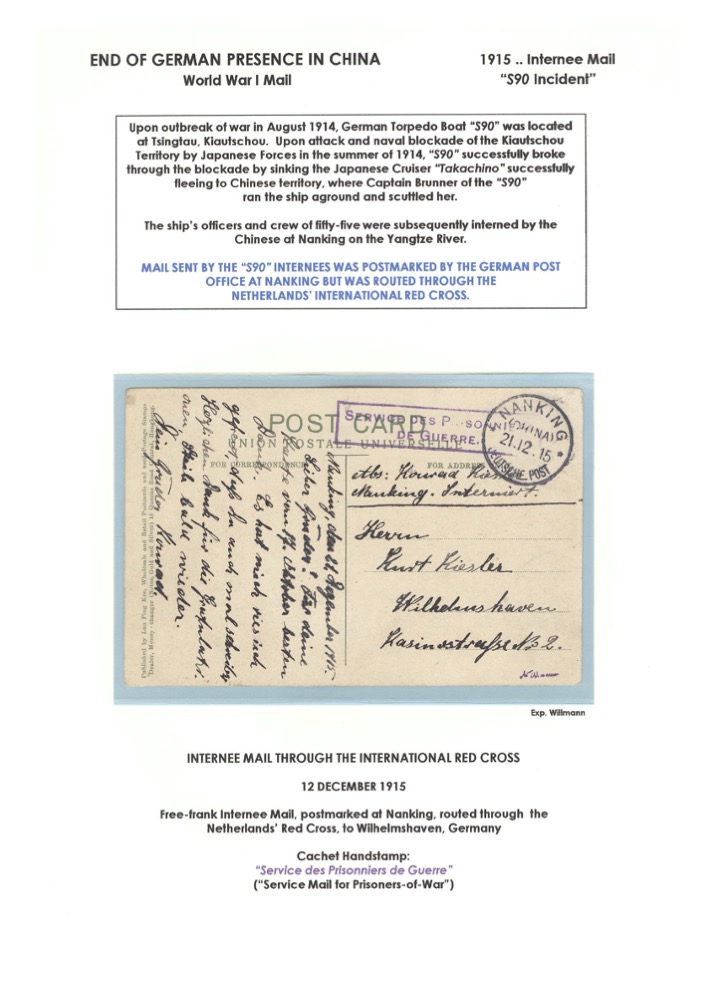 END OF GERMAN PRESENCE IN CHINA
World War I Mail
1915 .. Internee Mail
“S90 Incident”
Upon outbreak of war in August 1914, German Torpedo Boat “S90” was located
at Tsingtau, Kiautschou. Upon attack and naval blockade of the Kiautschou
Territory by Japanese Forces in the summer of 1914, “S90” successfully broke
through the blockade by sinking the Japanese Cruiser “Takachino” successfully
fleeing to Chinese territory, where Captain Brunner of the “S90”
ran the ship aground and scuttled her.
The ship’s officers and crew of fifty-five were subsequently interned by the
Chinese at Nanking on the Yangtze River.
MAIL SENT BY THE “S90” INTERNEES WAS POSTMARKED BY THE GERMAN POST
OFFICE AT NANKING BUT WAS ROUTED THROUGH THE
NETHERLANDS’ INTERNATIONAL RED CROSS.
POST CARD
UNION POSTALE UNIVERSELLE
FOR CORRESPONDENCE
FOR ADDRESS
SERVICE DES P SONNI
DE GUERRE.
NANKING
(CHINA)
21.12.15
DEUTSCHE POST
Abs: Konrad
Nanking. Interniert.
Herrn
Kurt Kiesler
Wilhelmshaven
Kasinostraße No 2.
Nanking, den 21. Dezember 1915.
Lieber Bruder! Für deine
Karte vom 17. Oktober besten
Dank. Es hat mich riesich
gefreut, daß du auch mal schreibst
Herzlichen Dank für die Gratulati-
onen, Schreib bald wieder.
Dein Bruder Konrad.
Exp. Willmann
INTERNEE MAIL THROUGH THE INTERNATIONAL RED CROSS
12 DECEMBER 1915
Free-frank Internee Mail, postmarked at Nanking, routed through the
Netherlands’ Red Cross, to Wilhelmshaven, Germany
Cachet Handstamp:
“Service des Prisonniers de Guerre”
(“Service Mail for Prisoners-of-War”)